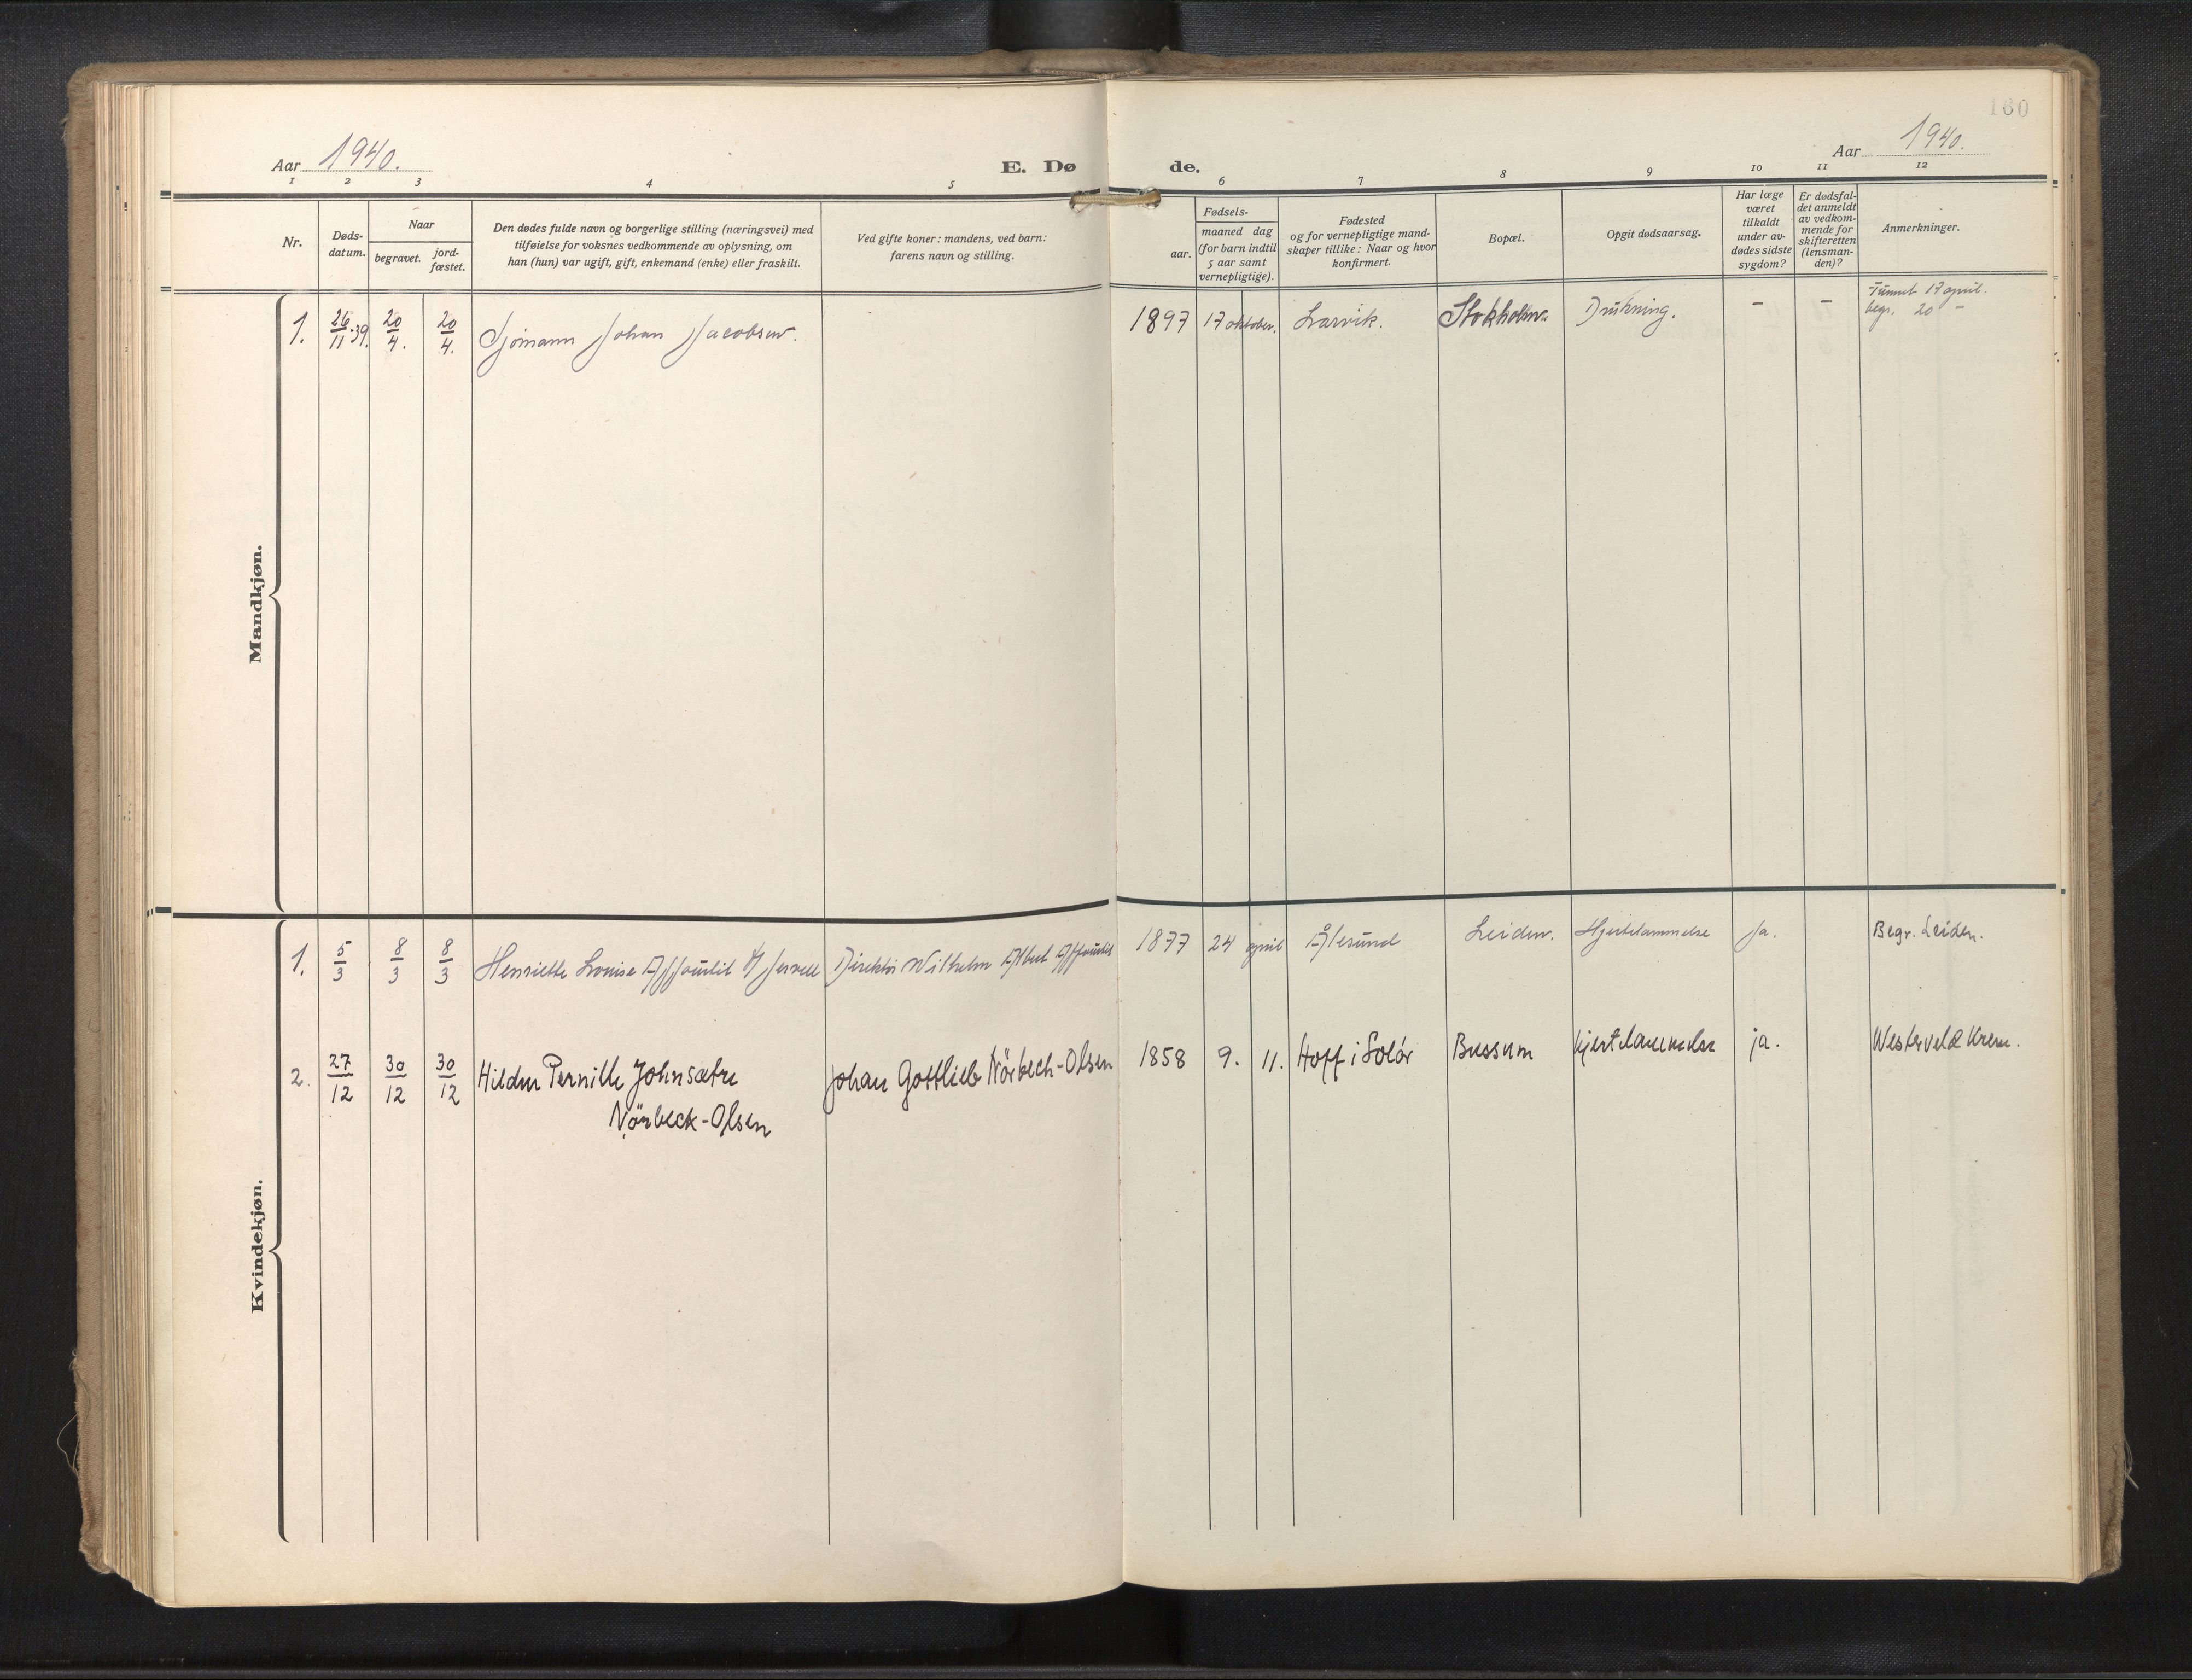 160
Aar 1940.
E. Dø de.
Aar 1940.
1 2 3 4 5 6 7 8 9 10 11 12
Nr.
Døds-
datum.
Naar
begravet.
jord-
fæstet.
Den dødes fulde navn og borgerlige stilling (næringsvei) med
tilføielse for voksnes vedkommende av oplysning, om
han (hun) var ugift, gift, enkemand (enke) eller fraskilt.
Ved gifte koner: mandens, ved barn:
farens navn og stilling.
aar.
Fødsels-
maaned dag
(for barn indtil
5 aar samt
vernepligtige).
Fødested
og for vernepligtige mand-
skaper tillike: Naar og hvor
konfirmert.
Bopæl.
Opgit dødsaarsag.
Har læge
været
tilkaldt
under av-
dødes sidste
sygdom?
Er dødsfal-
det anmeldt
av vedkom-
mende for
skifteretten
(lensman-
den)?
Anmerkninger.
Mandkjøn.
1. 26/11 39. 20/4. 20/4. Sjømann Johan Jacobsen. 1897 17 oktober. Larvik. Stokholm. Drukning. - - Funnet 17 april.
begr. 20 -
Kvindekjøn.
1. 5/3 8/3 8/3 Henriette Louise Direktør Wilhelm 1877 24 april Ålesund Leiden. Hjertelammelse Ja. Begr. Leiden.
2. 27/12 30/12 30/12 Hildur Pernille Johnsætre Johan Gottlieb Nörbech-Olsen 1858 9. 11. Hoff i Solör Bussum hjertelammelse ja. Westerveld Krem.
Nörbeck-Olsen